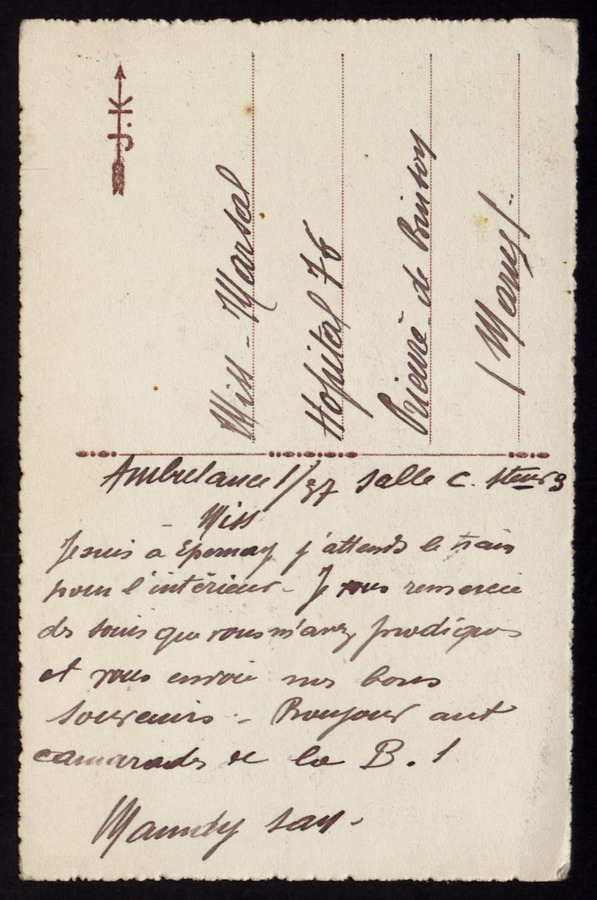 J.K
Miss - Marsal
Hopital 76
Prieuré de Binson
(Marne)
Ambulance 1/37 Salle C.
Miss
Je suis à Epernay j'attends le train
pour l'intérieur - Je vous remercie
des soins que vous m'avez prodigués
et vous envoie mes bons
souvenirs - Bonjour aux
camarades de la B. 1